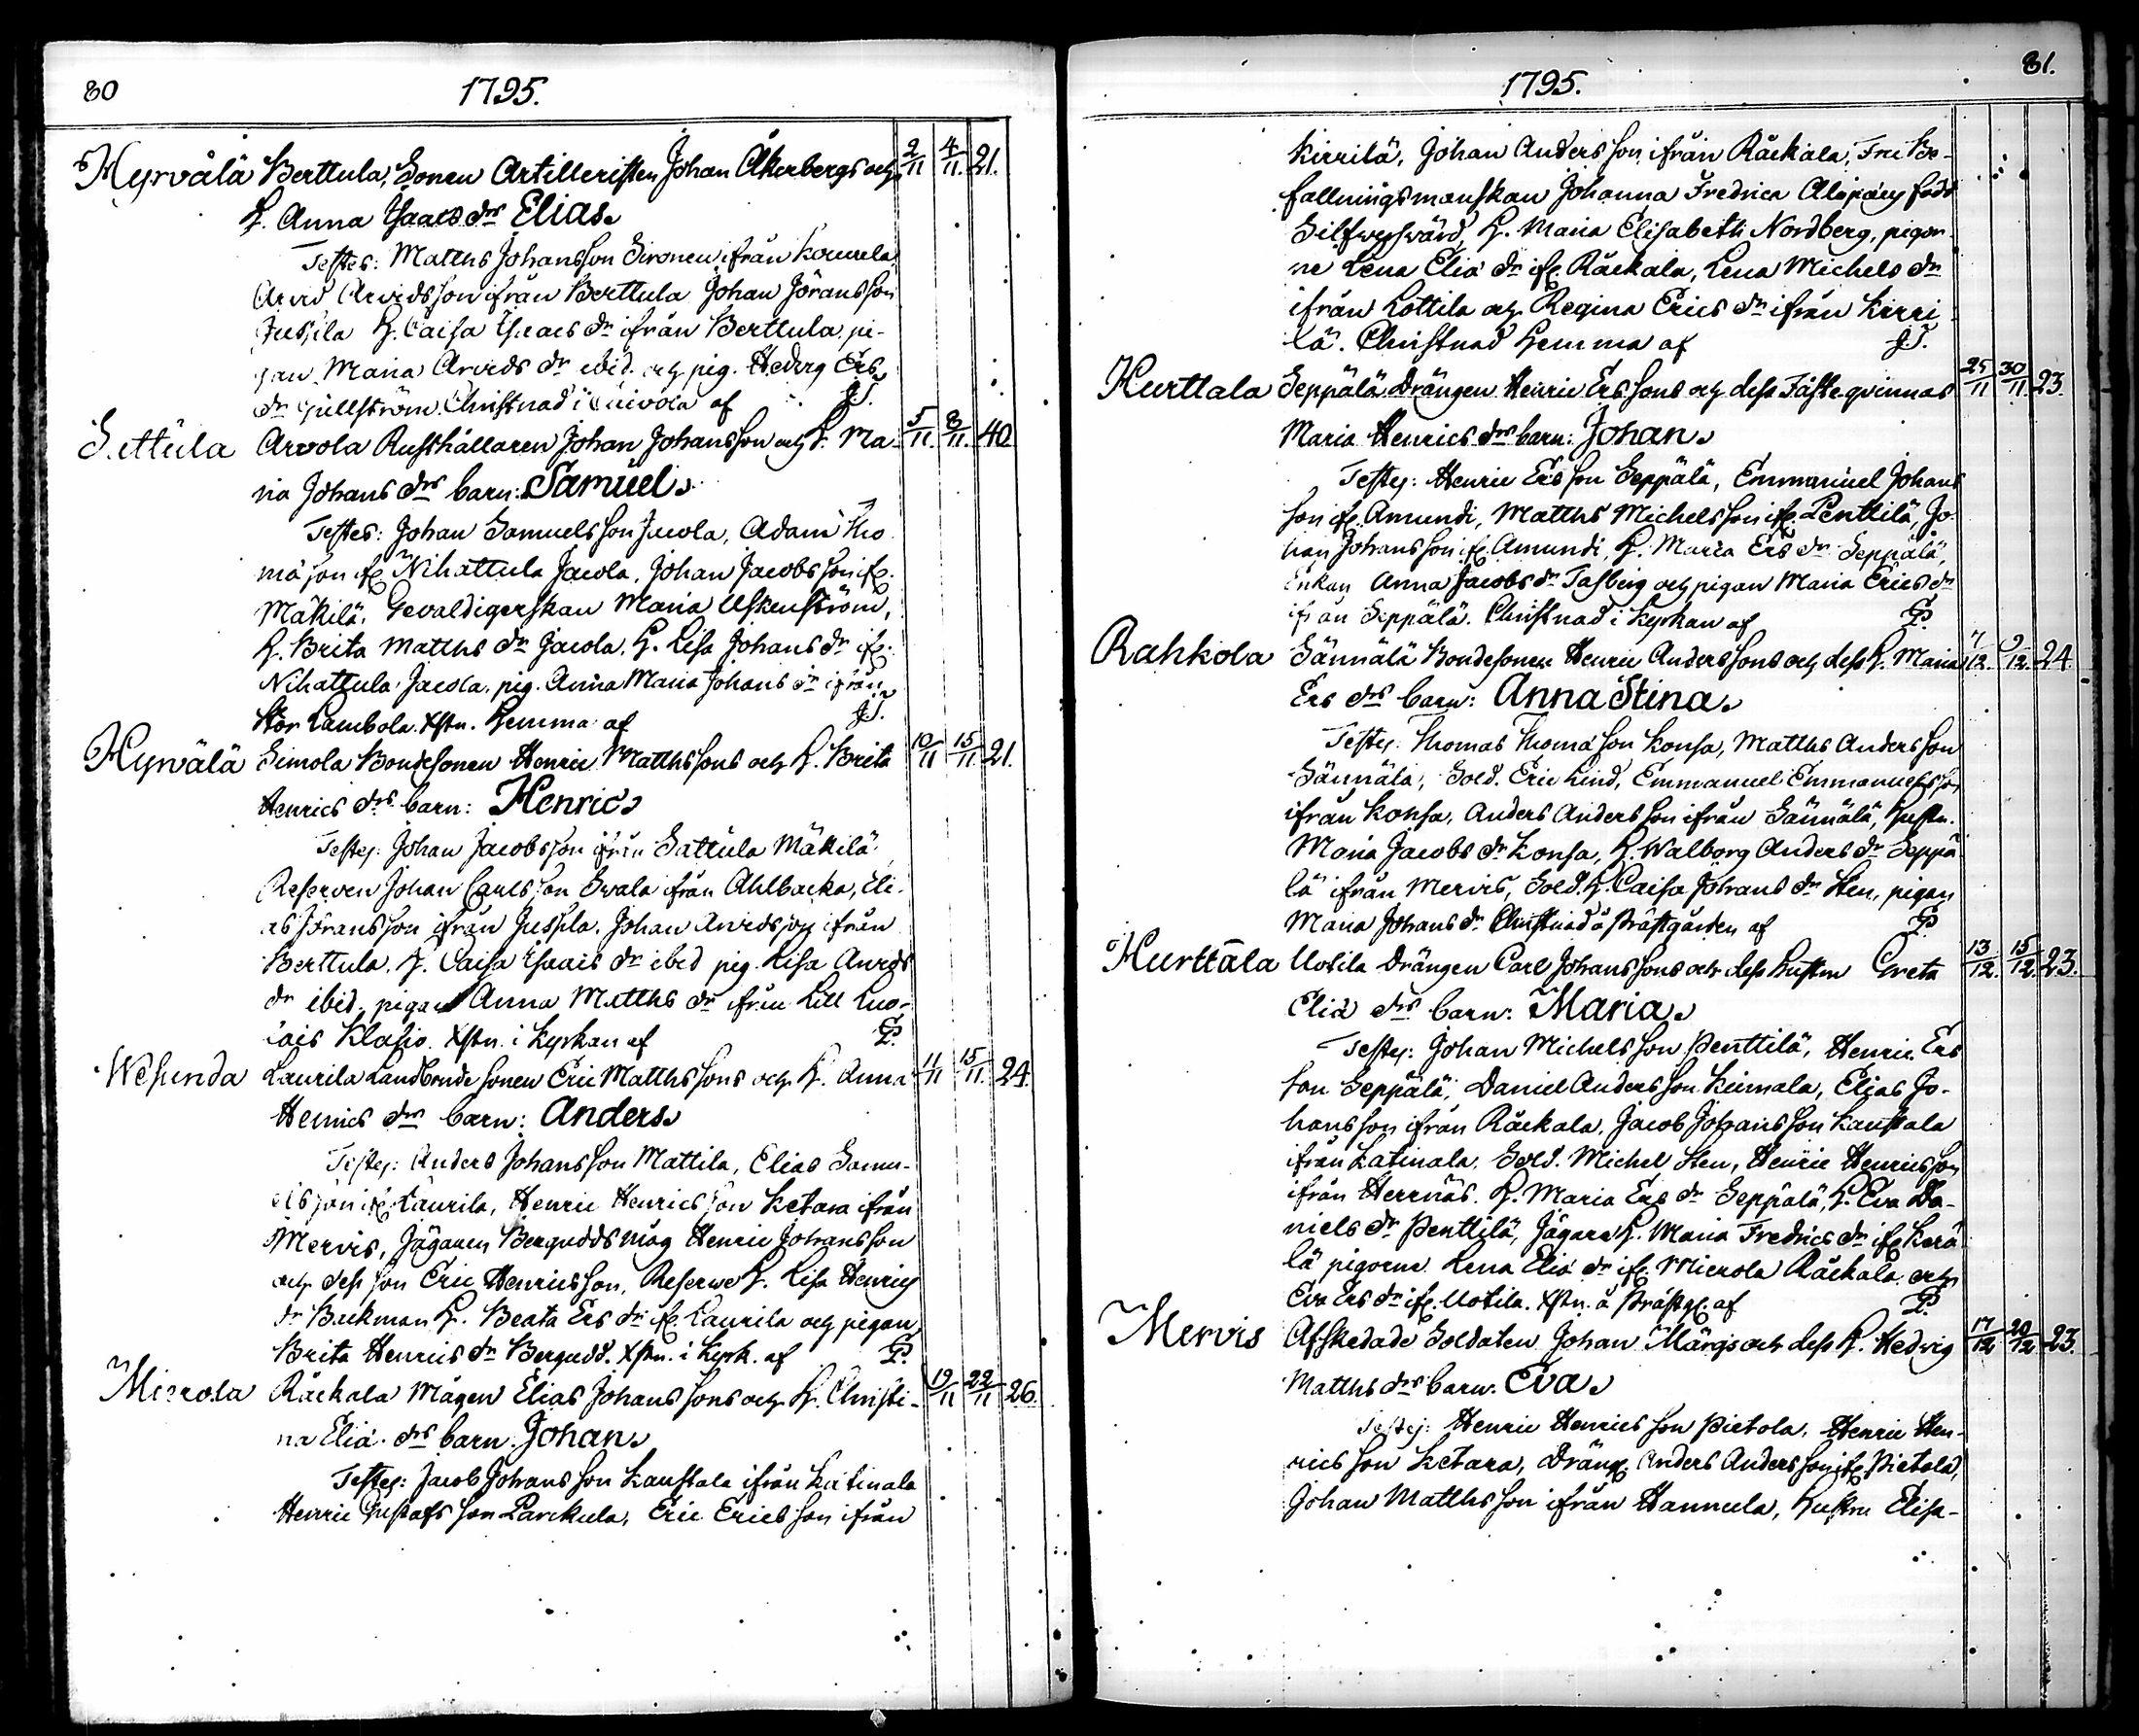 80
1795.
Hyrvälä Berttula, Sonen Artilleristen Johan Åkerbergs och 2/11 4/11. 21.
H. Anna Isaacs drs Elias.
Testes: Matths Johansson Sironen ifrån
Arvid Arvidsson ifrån Berttula Johan Jöransson
Jussila H. Caisa Isaacs dr ifrån Berttula, pi-
gan Maria Arvids dr ibid. och pig. Hedvig Ers
dr Gullström Christnad i af JS.
Settula Arvola Rusthållaren Johan Johansson och H. Ma- 5/11. 8/11. 40
ria Johans drs barn: Samuel.
Testes: Johan Samuelsson Jacola, Adam Tho
mason if. Nihattula Jacola, Johan Jacobsson if.
Mäkilä. Gevaldigerskan Maria Uskenström,
H. Brita Matths dr Jacola, H. Lisa Johans dr if.
Nihattula Jacola, pig. Anna Maria Johans dr ifrån
Stor Lambola. Xstn. Hemma af JS.
Hyrvälä Simola Bondesonen Henric Matthssons och H. Brita 10/11 15/11 21.
Henrics drs barn: Henric.
Testes: Johan Jacobsson ifrån Sattula Mäkilä
Reserven Johan Carlsson Svala ifrån Ahlbacka, Eli-
as Fransson ifrån Jussila. Johan Arvidsson ifrån
Berttula. H. Caisa Isaacs dr ibid pig. Lisa Arvids
dr ibid. pigan Anna Matths dr ifrån Lill Luo-
lais Klasio. Xstn. i Kyrkan af P.
Wesunda Laurila Landbonde sonen Eric Matthssons och H. Anna 11/11 15/11. 24.
Henrics drs barn: Anders.
Testes: Anders Johansson Mattila, Elias Samu-
elsson if. Laurila, Henric Henricsson Ketara ifrån
Mervis, Jägaren Bergudds måg Henric Johansson
och dess son Eric Henricsson, Reserve H. Lisa Henrics
dr Backman H. Beata Ers dr if. Laurila och pigan
Brita Henrics dr Bergudd. Xstn. i Kyrk. af P.
Mierola Räckala Mågen Elias Johanssons och H. Christi- 19/11 22/11 26.
na Elia drs barn. Johan.
Testes: Jacob Johansson Kaustala ifrån Katinala
Henric Gustafsson Parckula, Eric Ericsson ifrån
1795.
81.
Kirrilä, Johan Andersson ifrån Räckala, Fru Be-
fallningsmanskan Johanna Fredrica född
Silfversvärd, H. Maria Elisabeth Nordberg, pigor-
ne Lena Elia dr if. Räckala, Lena Michels dr
ifrån Lottila och Regina Erics dr ifrån Kirri-
lä. Christnad Hemma af JS.
Hurttala Seppälä Drängen Henric Ers sons och dess Fästeqvinnas 25/11 30/11. 23.
Maria Henrics drs barn: Johan.
Testes: Henric Ersson Seppälä, Emmanuel Johans
son if. Amundi, Matths Michelsson if. Penttilä, Jo-
han Johansson if. Amundi, H. Maria Ers dr Seppälä,
Enkan Anna Jacobs dr Tasberg och pigan Maria Erics dr
ifrån Seppälä. Christnad i Kyrkan af P.
Rahkola Sännälä Bondesonen Henric Anderssons och dess H. Maria 7/12. 9/12. 24.
Ers drs barn: Anna Stina.
Testes: Thomas Thomasson Konsa, Matths Andersson
Sännälä, Sold. Eric Lind, Emmanuel Emmanuelsson
ifrån Konsa, Anders Andersson ifrån Sännälä, Hustr.
Maria Jacobs dr Konsa, H. Walborg Anders dr Seppä
lä ifrån Mervis, Sold. H. Caisa Johans dr Sten, pigan
Maria Johans dr Christnad å Prästgården af P
Hurttala Uotila Drängen Carl Johanssons och dess Hustru Greta 13/12. 15/12. 23.
Elia drs barn: Maria.
Testes: Johan Michelsson Penttilä, Henric Ers
son Seppälä, Daniel Andersson Keimala, Elias Jo-
hansson ifrån Räckala, Jacob Johansson Kaustala
ifrån Katinala, Sold. Michel Sten, Henric Henricsson
ifrån Herrnäs. H. Maria Ers dr Seppälä, H. Eva Da-
niels dr Penttilä, Jägare H. Maria Fredrics dr if. Kerä
lä pigorne Lena Elia dr if. Mierola Räckala och
Eva Ers dr if. Uotila. Xstn. å Prästg. af P.
Mervis Afskedade Soldaten Johan Märgs och dess H. Hedvig 17/12 20/12 23.
Matths drs barn. Eva.
Testes: Henric Henricsson Pietola, Henric Hen-
ricsson Ketara, Dräng. Anders Andersson if. Pietola,
Johan Matthsson ifrån Hannula, Hustru Elisa-